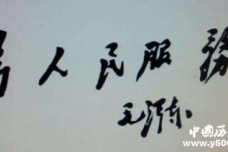 為人民服務
毛泽东
中国历
www.y500